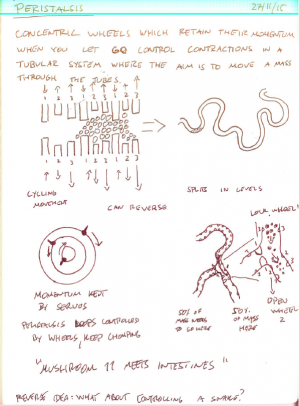 PERISTALSIS
27/11/15
CONCENTRIC WHEELS WHICH RETAIN THEIR MOMENTUM
WHEN YOU LET GO CONTROL CONTRACTIONS IN A
TUBULAR SYSTEM WHERE THE AIM IS TO MOVE A MASS
THROUGH THE TUBES.
1 2 3 1 2 1 2 3
1 2 3 1 2 3 1 2 3
CYCLING
MOVEMENT
CAN REVERSE
SPLITS IN LEVELS
LOCK WHEEL 1
MOMENTUM KEPT
BY SERVOS
50% OF
MASS NEEDS
TO GO HERE
50%
OF MASS
HERE
OPEN
WHEEL
2
PERISTALSIS CONTROLLED
BY WHEELS, KEEP CHOMPING
"MUSHROOM 11 MEETS INTESTINES"
REVERSE IDEA: WHAT ABOUT CONTROLLING A SNAKE?